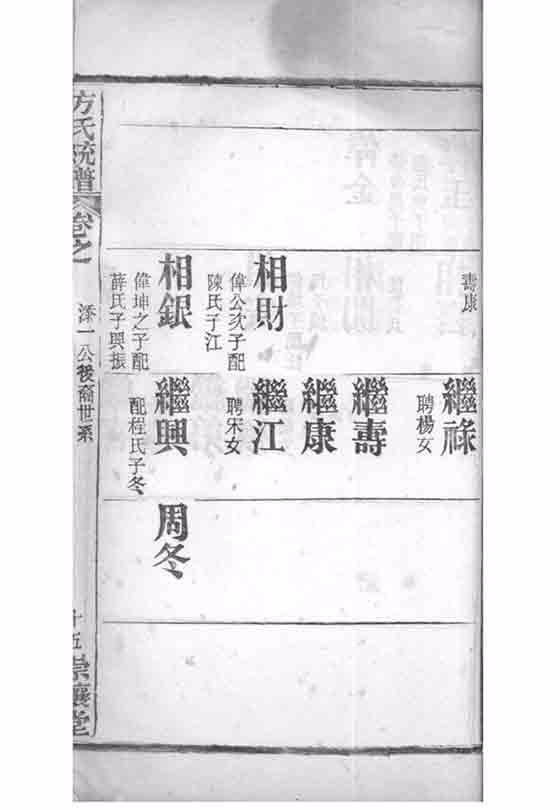 壽康
相財
偉公次子配
陳氏子江
相銀
偉坤之子配
薛氏子興振
繼祿
聘楊女
繼壽
繼康
繼江
聘宋女
繼興
配程氏子冬
周冬
方氏統譜
卷之
添一公後裔世系
十五
崇讓堂